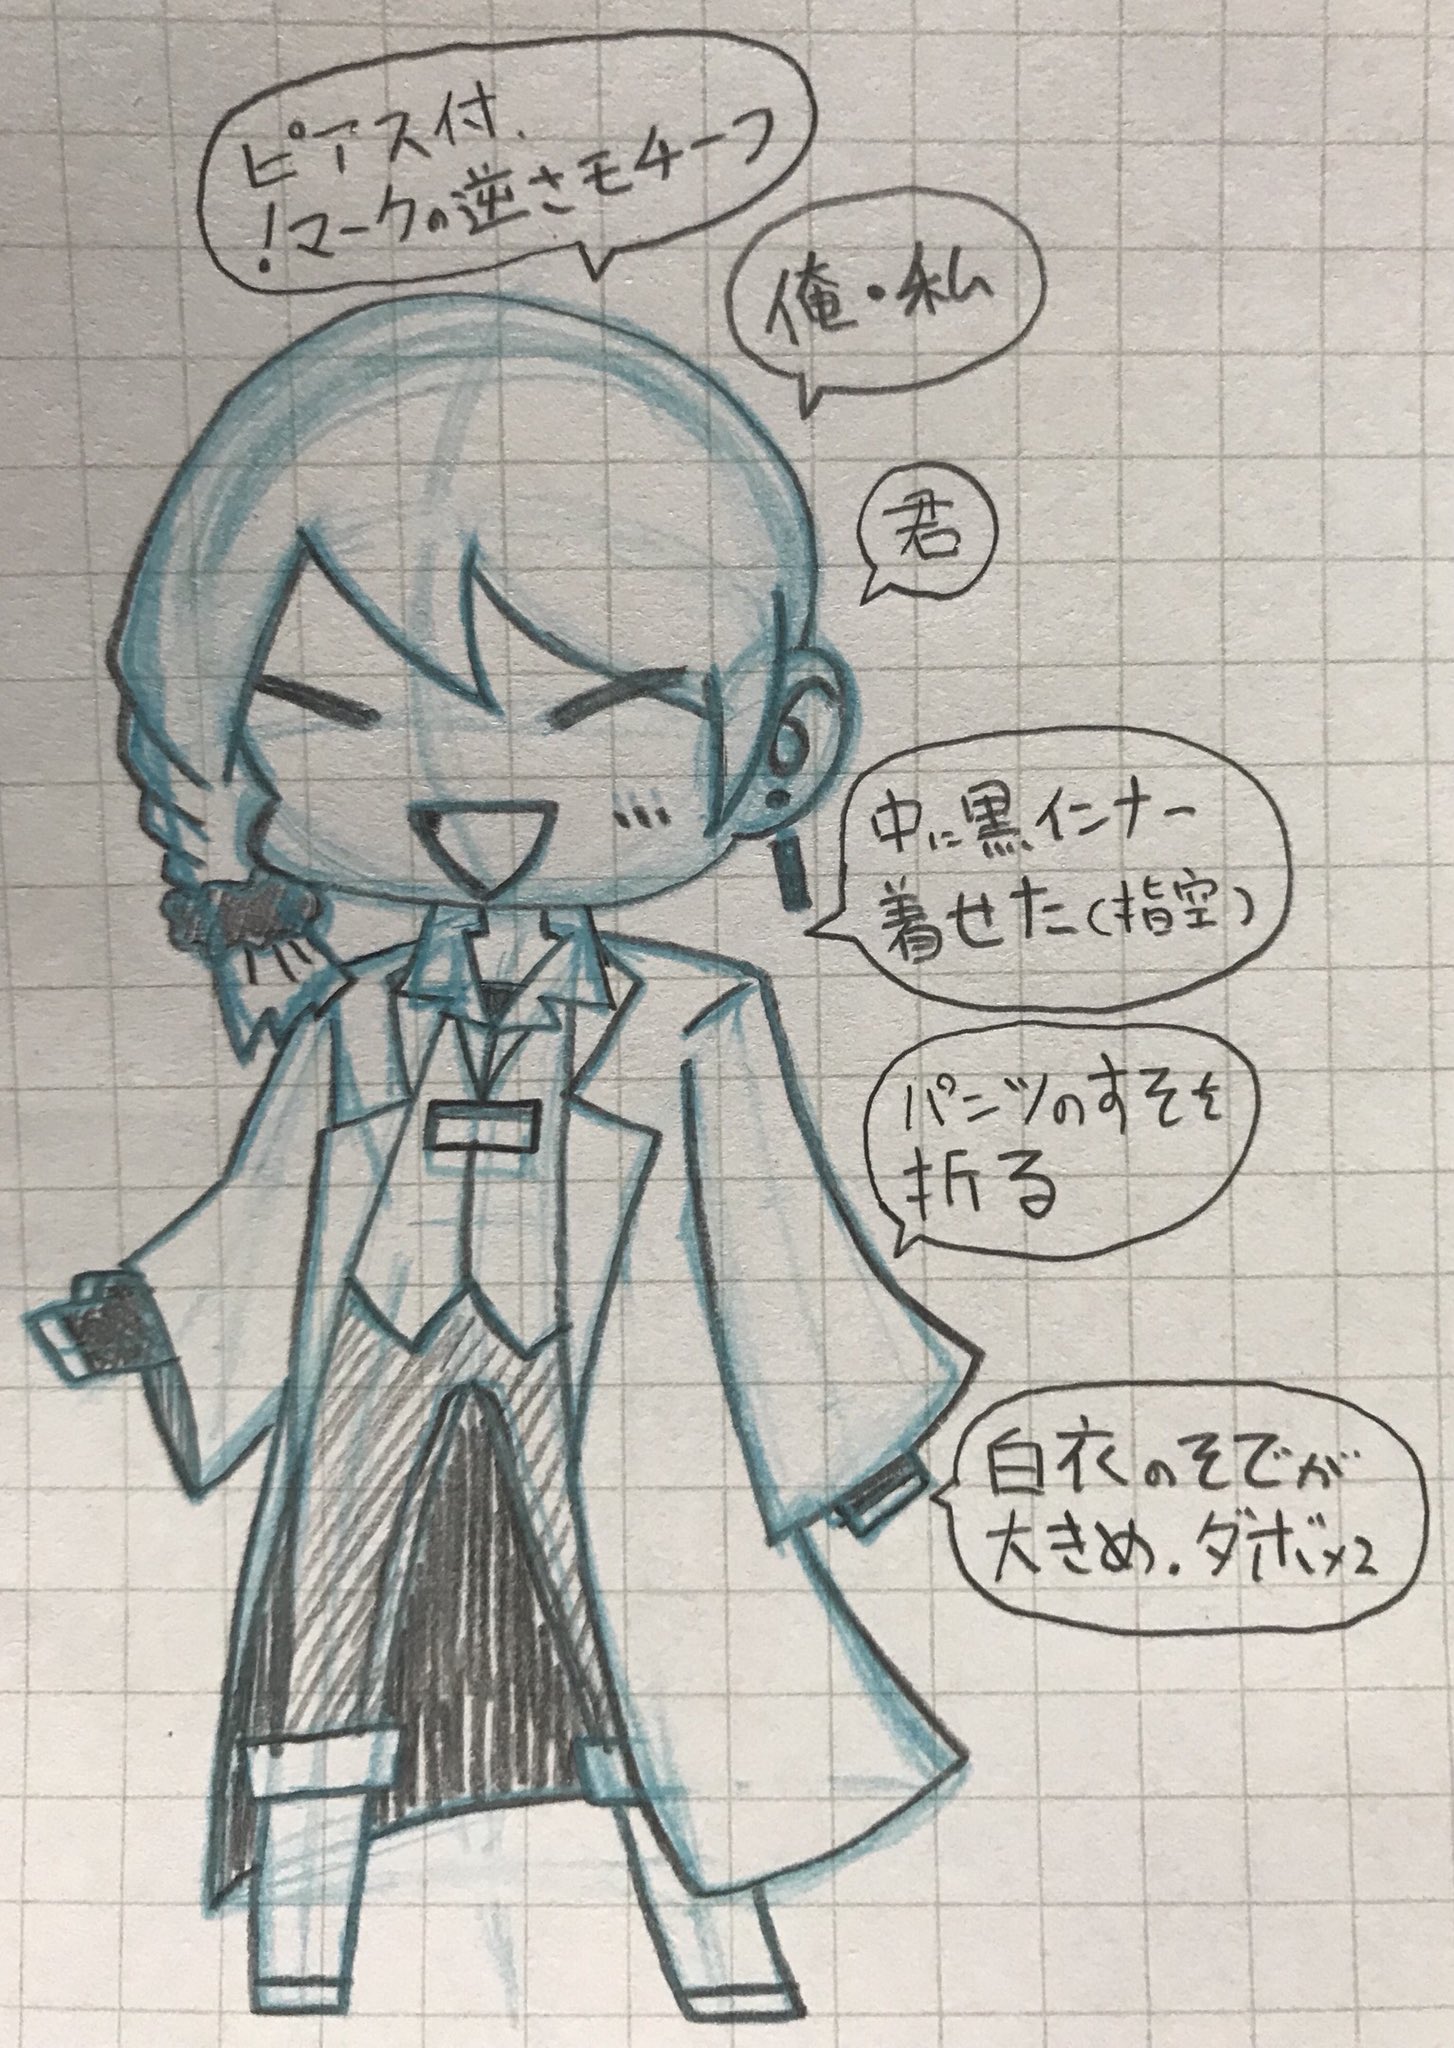 ピアス付、
！マークの逆さモチーフ
俺・私
君
中に黒インナー
着せた(指空)
パンツのすそを
折る
白衣のそでが
大きめ.ダボ×2